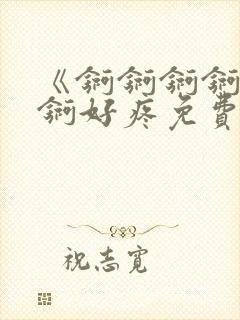 《锕锕锕锕
锕好疼免費
祝志寬